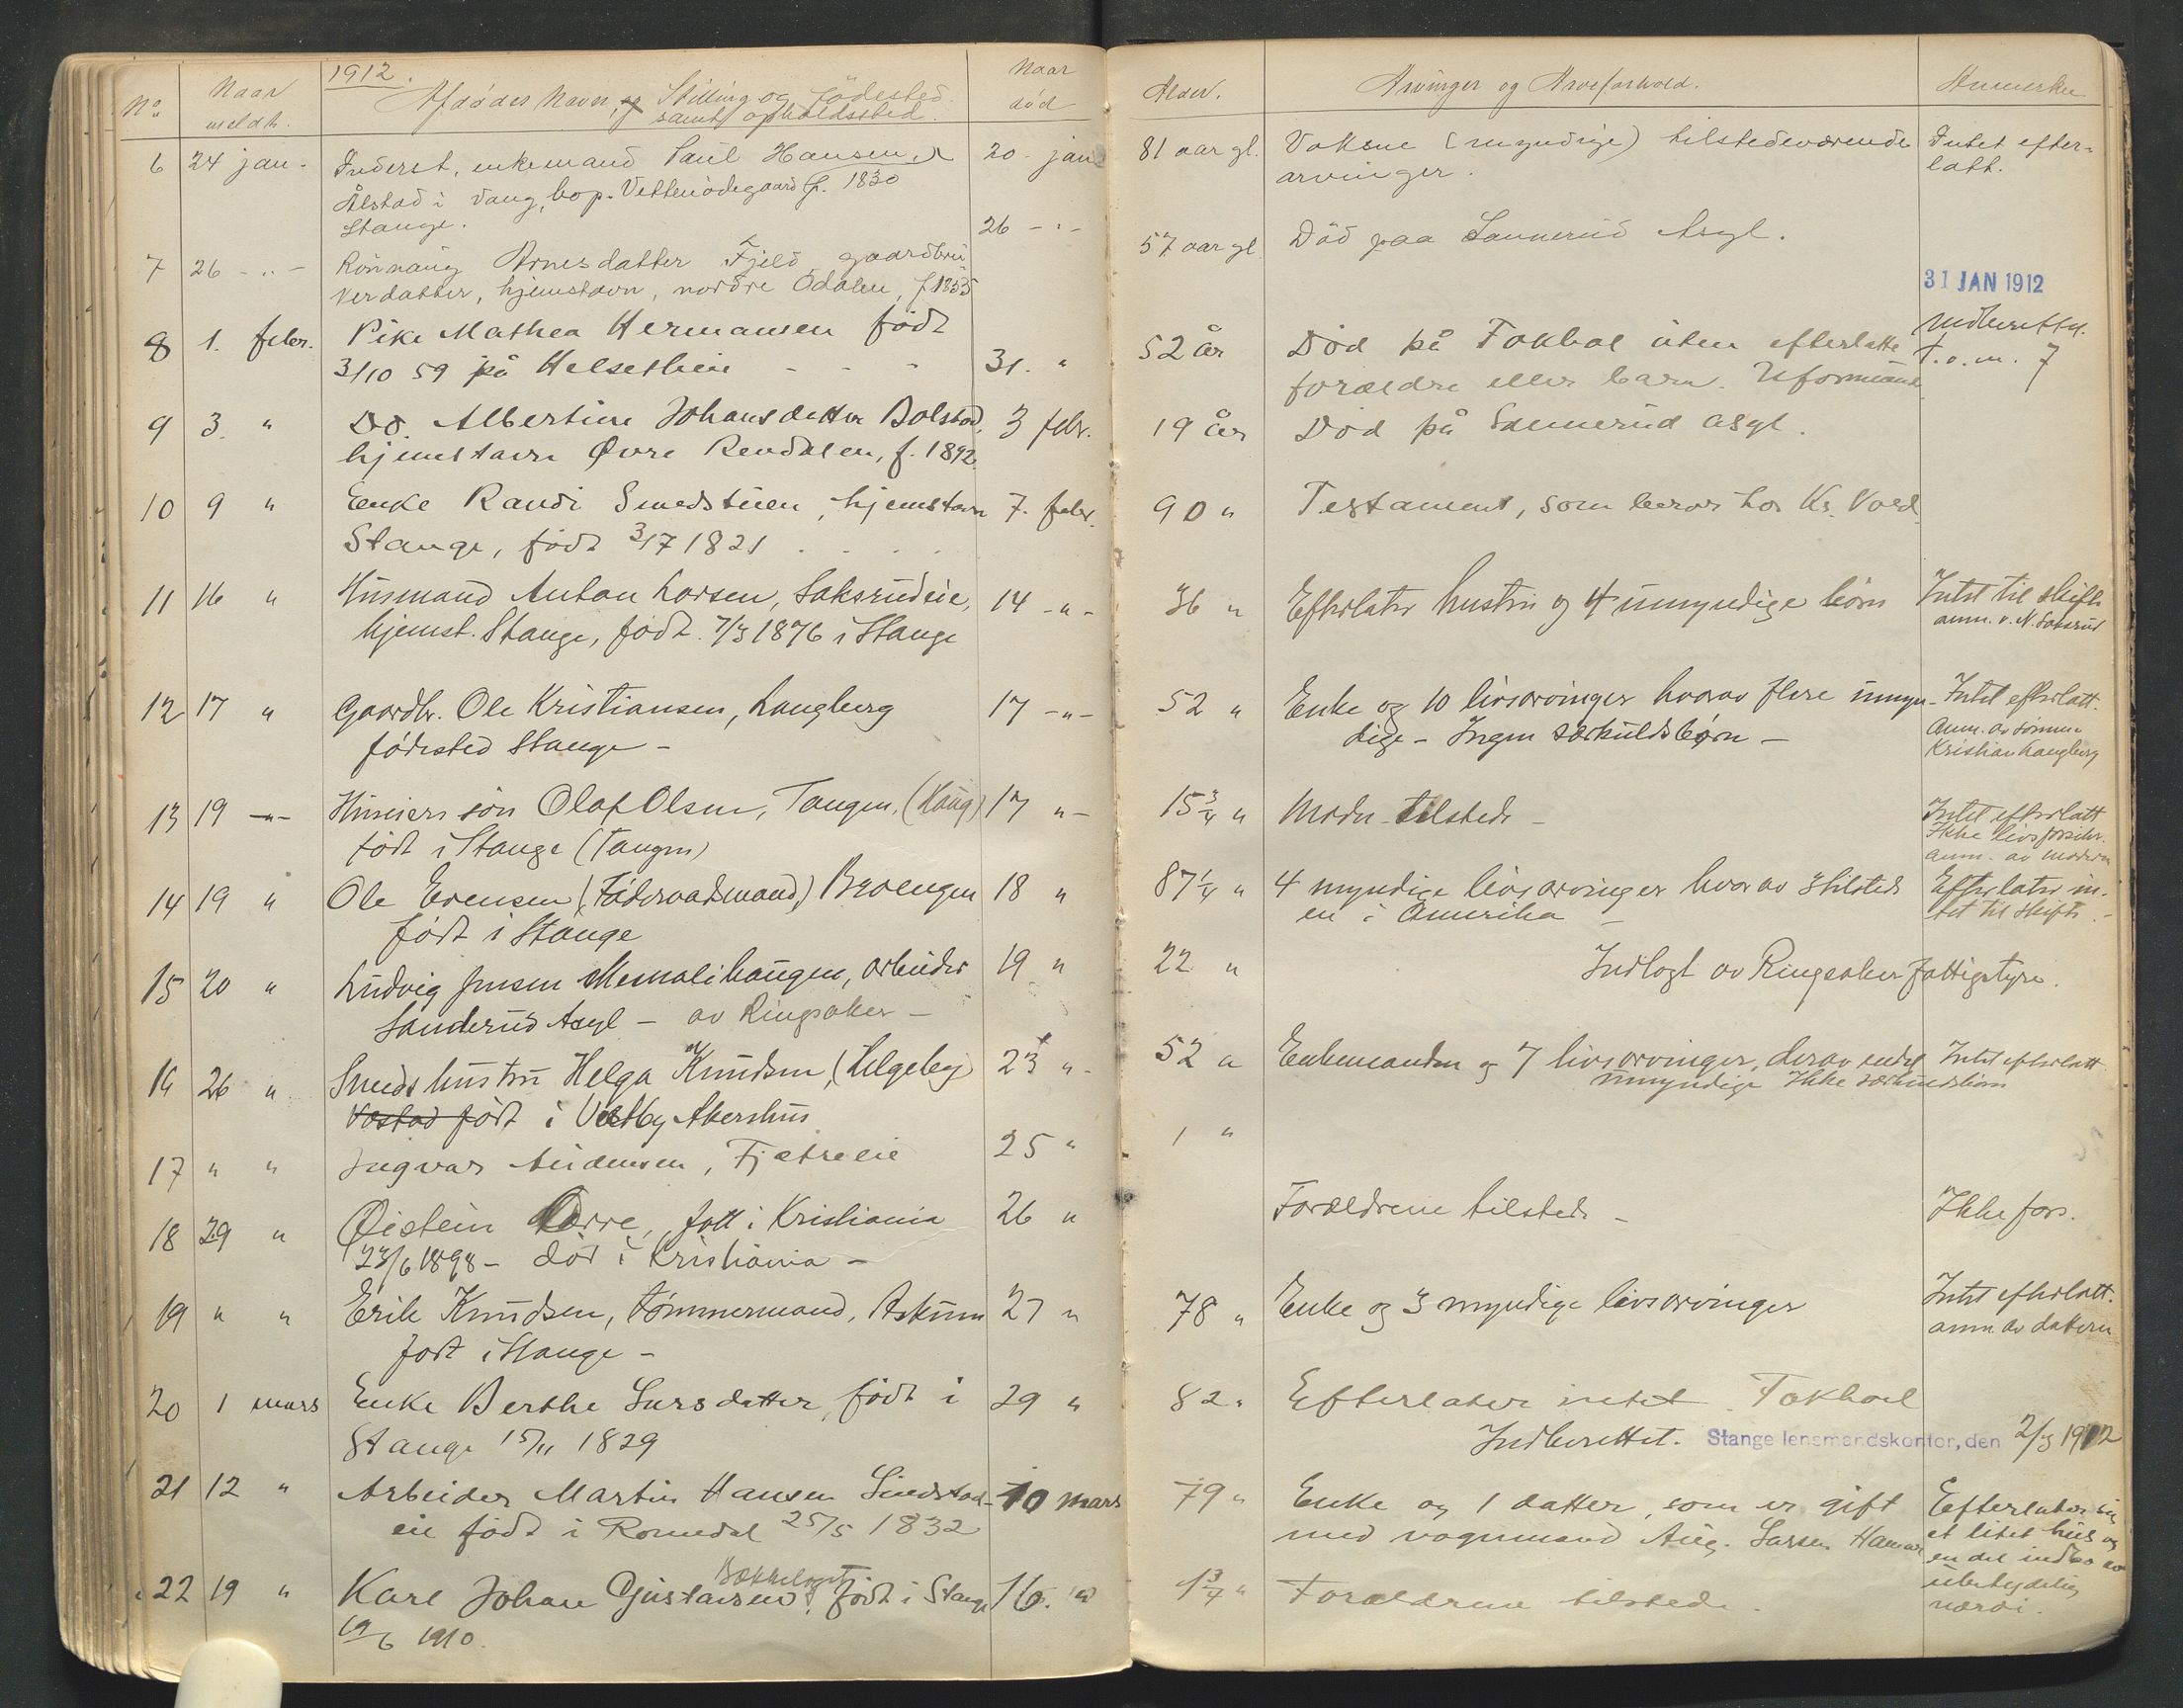 1912.
No Naar meldt. Afdødes Navn, Stilling og Fødested samt opholdssted. Naar død Alder. Arvinger og Arveforhold. Anmerkn.
6 24 jan. Inderst, enkemand Paul Hansen 20. jan 81 aar gl. Voksne (myndige) tilstedeværende Intet efter-
Ålstad i Vang, bop. Vettenødegaard f. 1830 arvinger. latt.
Stange.
7 26 - " - Rönnaug Arnesdatter Fjeld gaardbru 26 - " - 57 aar gl. Död paa Sannerud Asyl.
kerdatter, hjemstavn, nordre Odalen, f 1855 31 JAN 1912
8 1. febr. Pike Mathea Hermansen født 52 år Død på Fokhol uten efterlatte Indberettet
3/10 59 på Helsetheie - - - 31. " forældre eller barn. Uformuende t.o.m. 7
9 3. " Do. Albertine Johansdatter Bolstad, 3 febr. 19 år Død på Sannerud asyl.
hjemstavn Øvre Rendalen, f. 1892
10 9 " Enke Randi Smedstuen, hjemstavn 7. febr. 90 " Testament, som beror hos Kr. Vold
Stange, født 3/7 1821
11 16 " Husmand Anton Larsen, Saksrudeie, 14 - " - 36 " Efterlater hustru og 4 umyndige børn Intet til skifte
hjemst. Stange, født 7/3 1876 i Stange anm. v. N. Saksrud
12 17 " Gaardbr. Ole Kristiansen, Langberg 17 - " - 52 " Enke og 10 livsarvinger hvorav flere umyn- Intet efterlatt.
fødested Stange - dige - Ingen særkuldsbørn - Anm. av sønnen
Kristian Langberg
13 19 - " - søn Olaf Olsen, Tangen, (Haug) 17 " - 15 3/4 " Moder tilstede - Intet efterlatt
født i Stange (Tangen) Ikke livsforsikr.
anm. av moderen
14 19 " Ole Evensen (Føderaadsmand) Broengen 18 " 87 1/4 " 4 myndige livsarvinger hvorav 3 tilstede Efterlater in-
født i Stange en i Amerika - tet til skifte. -
15 20 " Ludvig Jensen arbeider 19 " 22 " Indlagt av Ringsaker fattigstyre.
Sanderud Asyl - av Ringsaker -
16 26 " Smeds hustru Helga Knudsen, (Helgeby) 23 " - 52 " Enkemanden og 7 livsarvinger, derav endel Intet efterlatt
født i Vestby Akershus umyndige Ikke særkuldsbörn
17 " " Ingvar Audensen, Fjetreeie 25 " 1 "
18 29 " Øistein Dørre, født i Kristiania 26 " Forældrene tilstede - Ikke fors.
23/6 1898 - død i Kristiania -
19 " " Erik Knudsen, tømmermand, Askum 27 " 78 " Enke og 3 myndige livsarvinger Intet efterlatt.
født i Stange - anm. av datteren
20 1 mars Enke Berthe Larsdatter, født i 29 " 82 " Efterlater intet Fokhoel
Stange 15/11 1829 Indberettet. Stange lensmandskontor, den 2/3 1912
21 12 " Arbeider Martin Hansen Lindstad- 10 mars 79 " Enke og 1 datter, som er gift Efterlater sig
eie født i Romedal 25/5 1832 med vognmand Aug. Larsen Hamar et litet hus og
en del indbo av
ubetydelig
værdi.
22 19 " Karl Johan Gustavsen, født i Stange 16. " 1 3/4 " Forældrene tilstede.
19/6 1910.